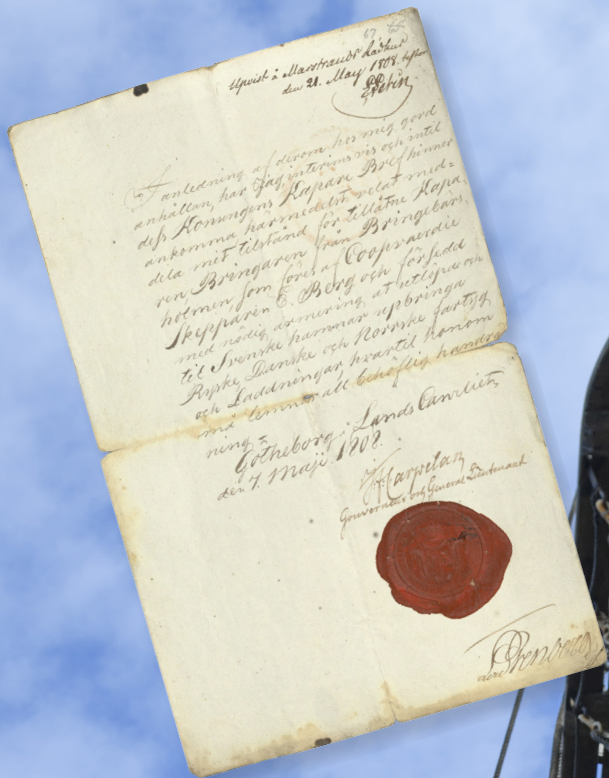 67
Upvist å Marstrands Rådhus
den 21. May 1808.
I anledning af derom hos mig gjord
anhållan, har jag interimsvis och intil
dess Konungens Kapare Bref hinner
ankomma härmedelst velat med-
dela mit tilstånd för tillåtne Kapa-
ren Bringaren från Bringebärs-
holmen som föres af Coopvaerdie
Skepparen C. Berg och försedd
med nödig armering at utlöpa och
til Svenske hamnar upbringa
Ryske Danske och Norrske fartyg
och Laddningar, hvartil honom
må lemnas all behöflig handräck-
ning. Götheborgs Lands Cancelie
den 7. Maji 1808.
Carpelan
Gouverneur och General Lieutenant